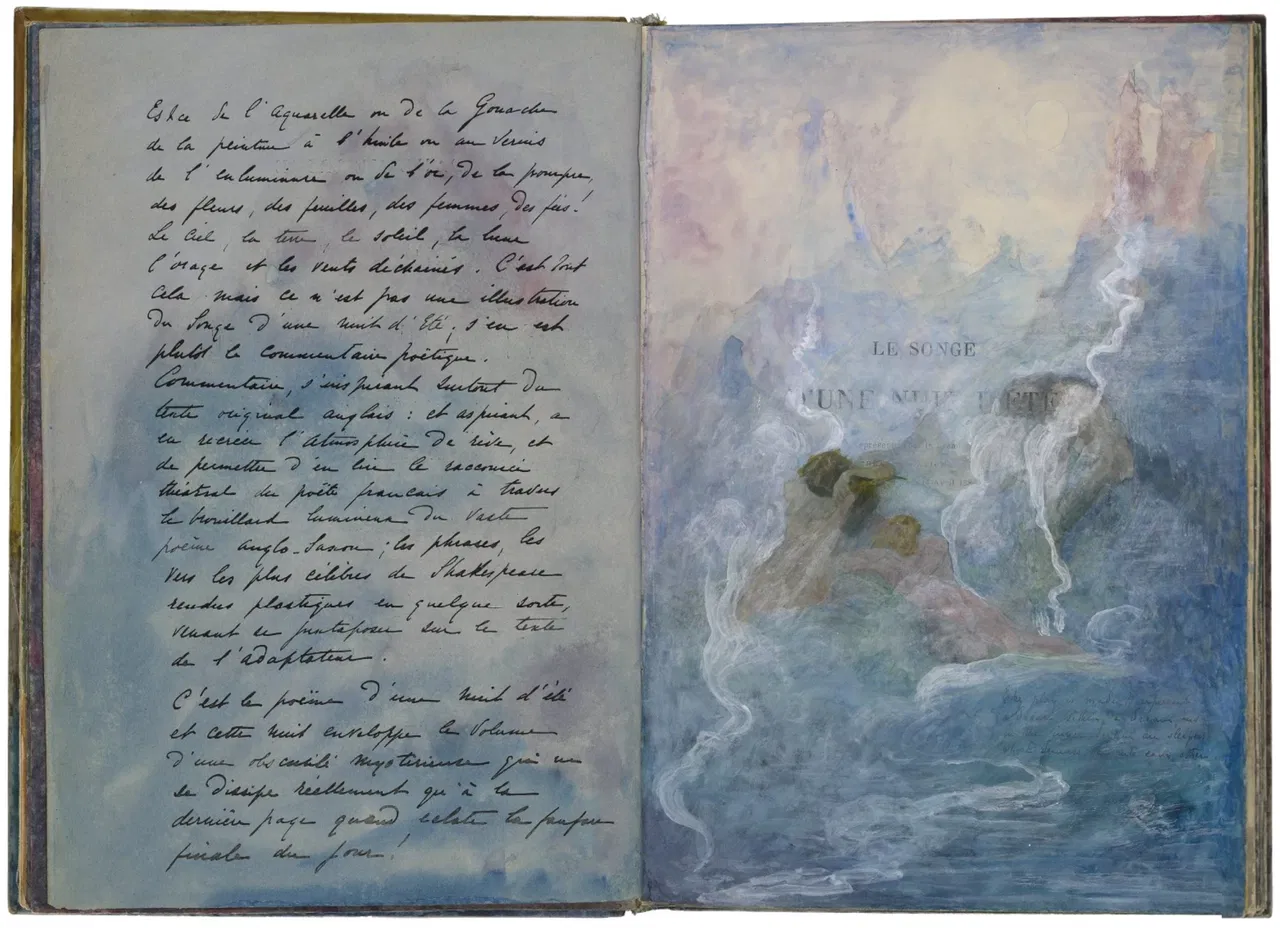 Est ce de l'aquarelle ou de la Gouache
de la peinture à l'huile ou au Vernis
de l'enluminure ou de l'or, de la pourpre,
des fleurs, des feuilles, des femmes, des fés!
Le Ciel, la terre, le soleil, la lune
l'orage et les vents déchainés. C'est tout
cela mais ce n'est pas une illustration
du Songe d'une nuit d'Eté; s'en est
plutôt le Commentaire poëtique.
Commentaire, s'inspirant surtout du
texte original anglais : et aspirant, a
en recréer l'atmosphère de rêve, et
de permettre d'en lire le raccourci
théatral du poëte français à travers
le brouillard lumineux du vaste
poëme anglo-Saxon; les phrases, les
vers les plus célèbres de Shakespeare
rendus plastiques en quelque sorte,
venant se juxtaposer sur le texte
de l'adaptateur.
C'est le poëme d'une nuit d'été
et cette nuit enveloppe le Volume
d'une obscurité mysterieuse qui ne
se dissipe réellement qu'à la
dernière page quand éclate la fanfare
finale du jour!
LE SONGE
D'UNE NUIT D'ETE